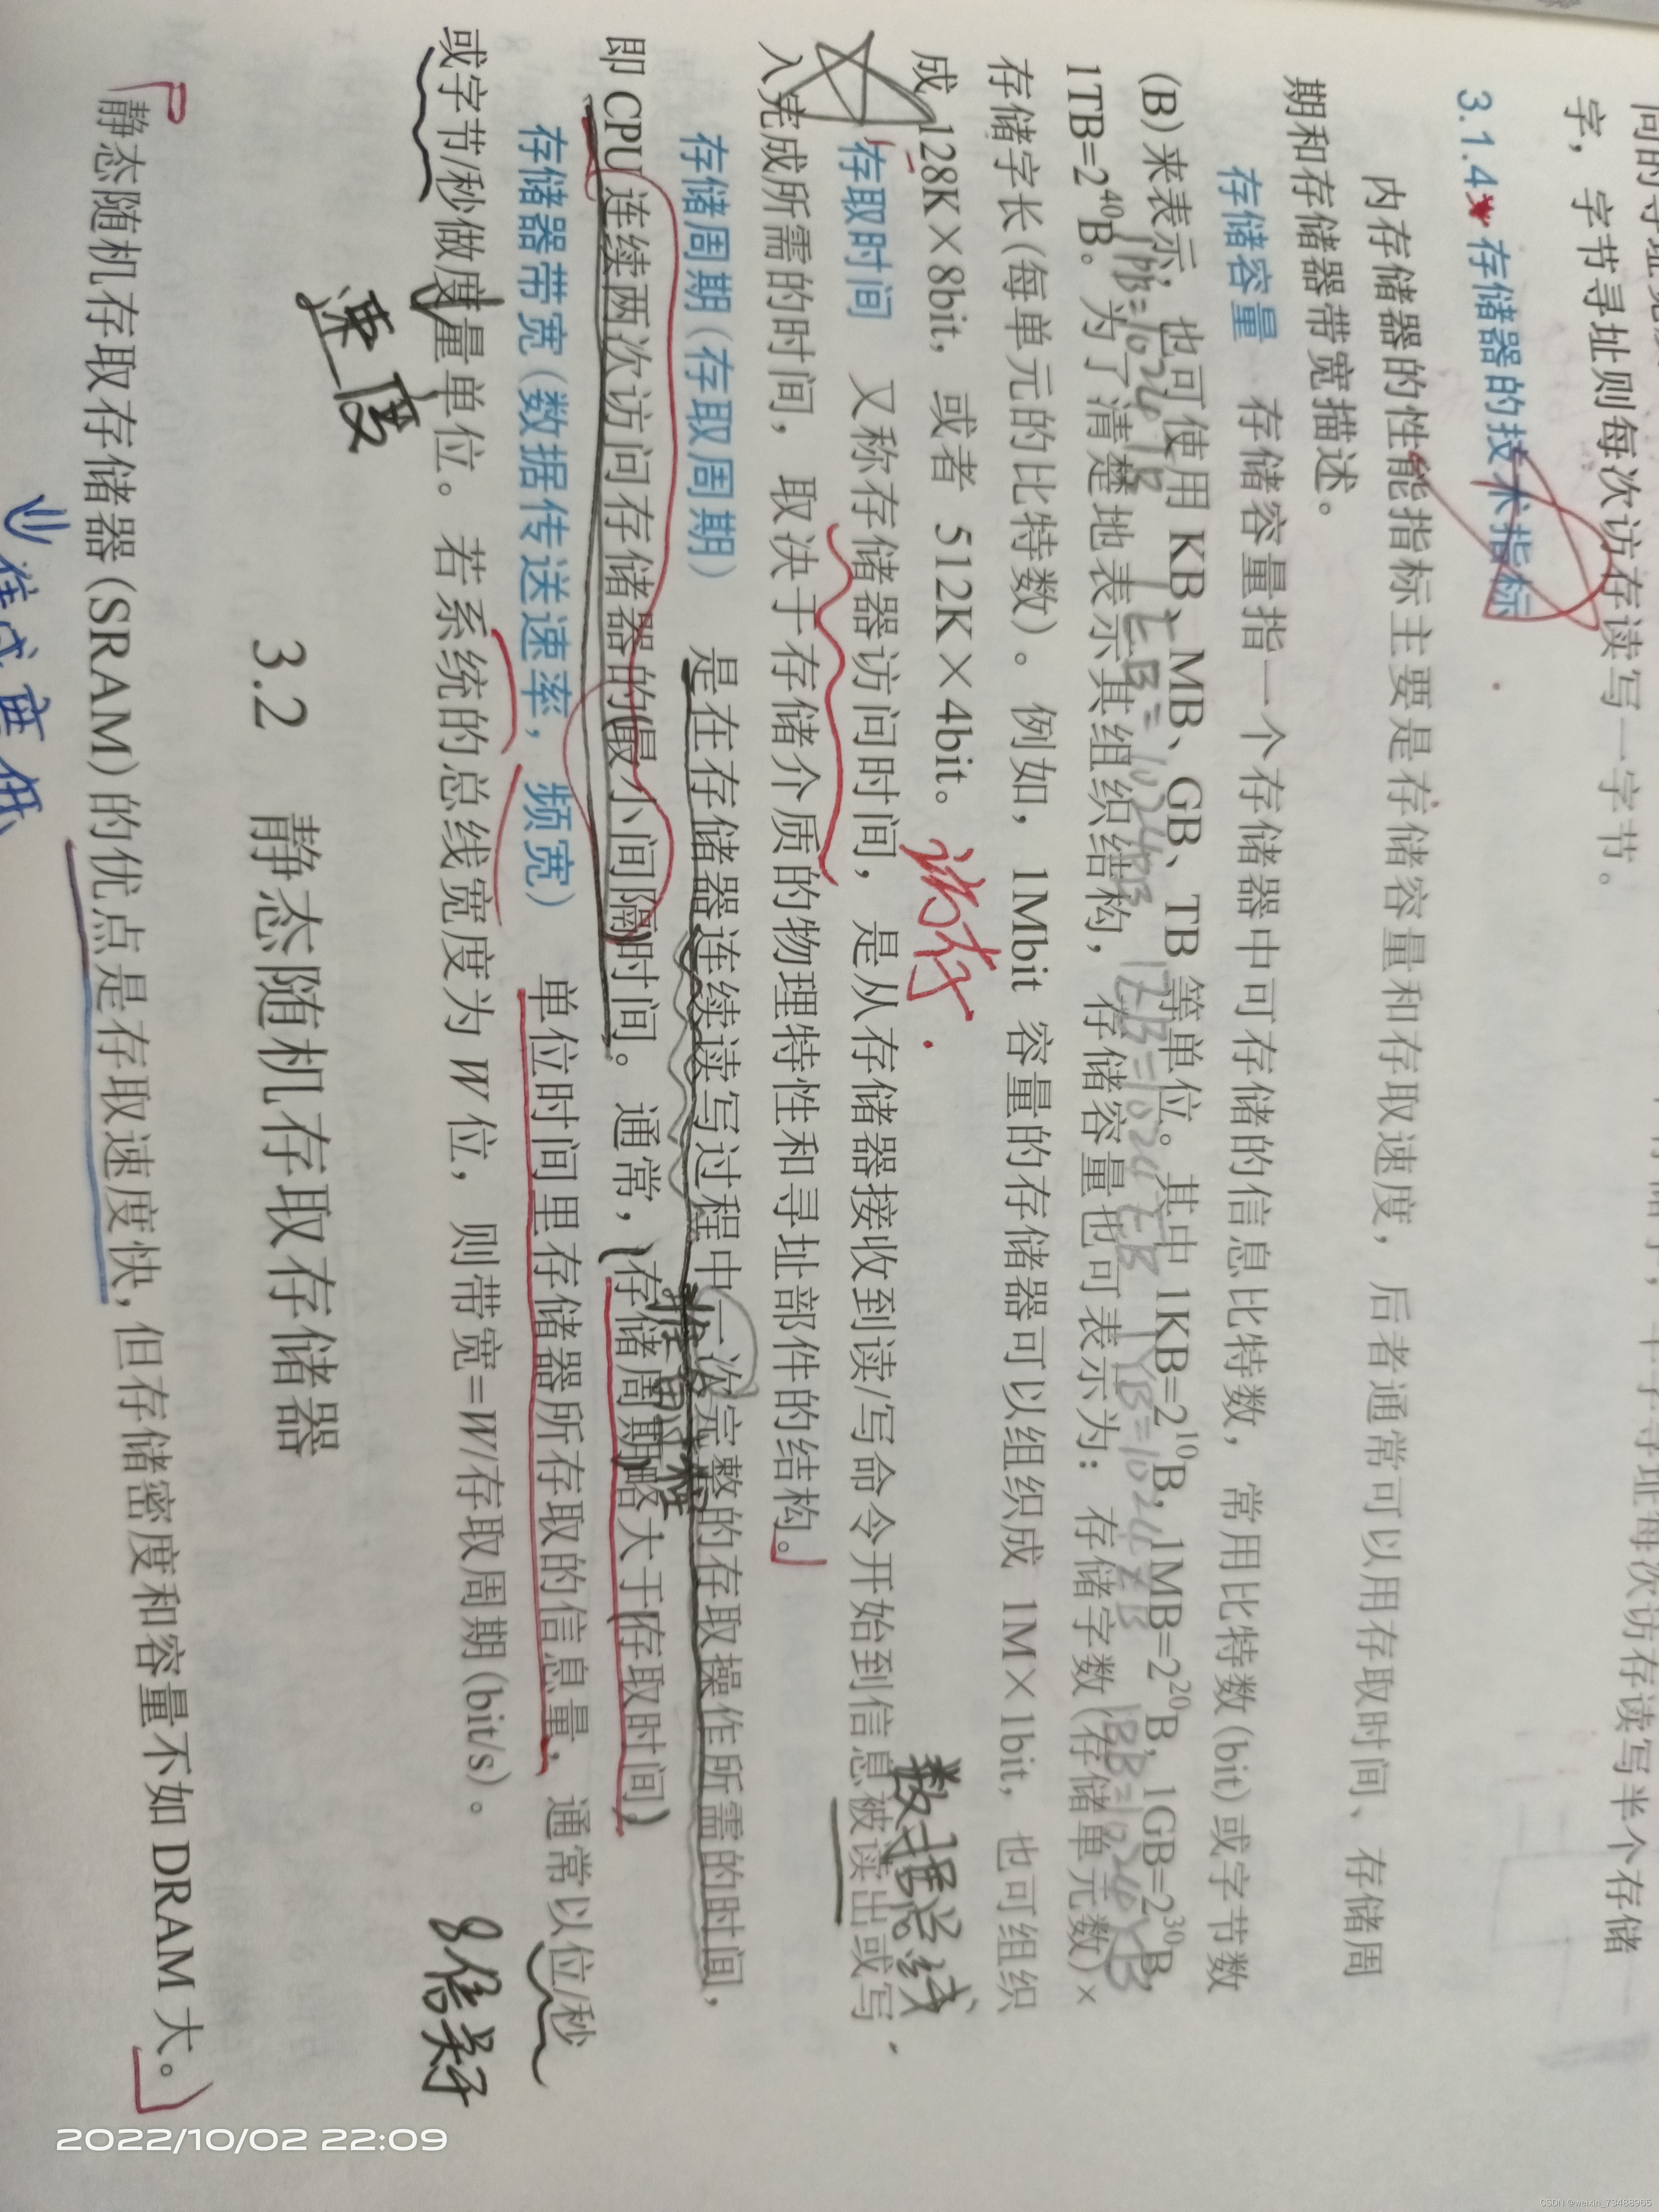 字，字节寻址则每次访存读写一字节。
3.1.4 存储器的技术指标
内存储器的性能指标主要是存储容量和存取速度，后者通常可以用存取时间、存储周
期和存储器带宽描述。
存储容量 存储容量指一个存储器中可存储的信息比特数，常用比特数(bit)或字节数
(B)来表示，也可使用 KB、MB、GB、TB 等单位。其中 1KB=2¹⁰B，1MB=2²⁰B，1GB=2³⁰B，
1TB=2⁴⁰B。为了清楚地表示其组织结构，存储容量也可表示为：存储字数(存储单元数)×
存储字长(每单元的比特数)。例如，1Mbit 容量的存储器可以组织成 1M×1bit，也可组织
成 128K×8bit，或者 512K×4bit。
数据总线
存取时间 又称存储器访问时间，是从存储器接收到读/写命令开始到信息被读出或写
入完成所需的时间，取决于存储介质的物理特性和寻址部件的结构。
存储周期(存取周期) 是在存储器连续读写过程中一次完整的存取操作所需的时间，
即 CPU 连续两次访问存储器的最小间隔时间。通常，(存储周期)略大于(存取时间)
存储器带宽(数据传送速率，频宽) 单位时间里存储器所存取的信息量，通常以位/秒
或字节/秒做度量单位。若系统的总线宽度为 W 位，则带宽=W/存取周期(bit/s)。
速度
8倍关系
3.2 静态随机存取存储器
静态随机存取存储器(SRAM)的优点是存取速度快，但存储密度和容量不如 DRAM 大。
集成度低
2022/10/02 22:09
CSDN @weixin_73488965